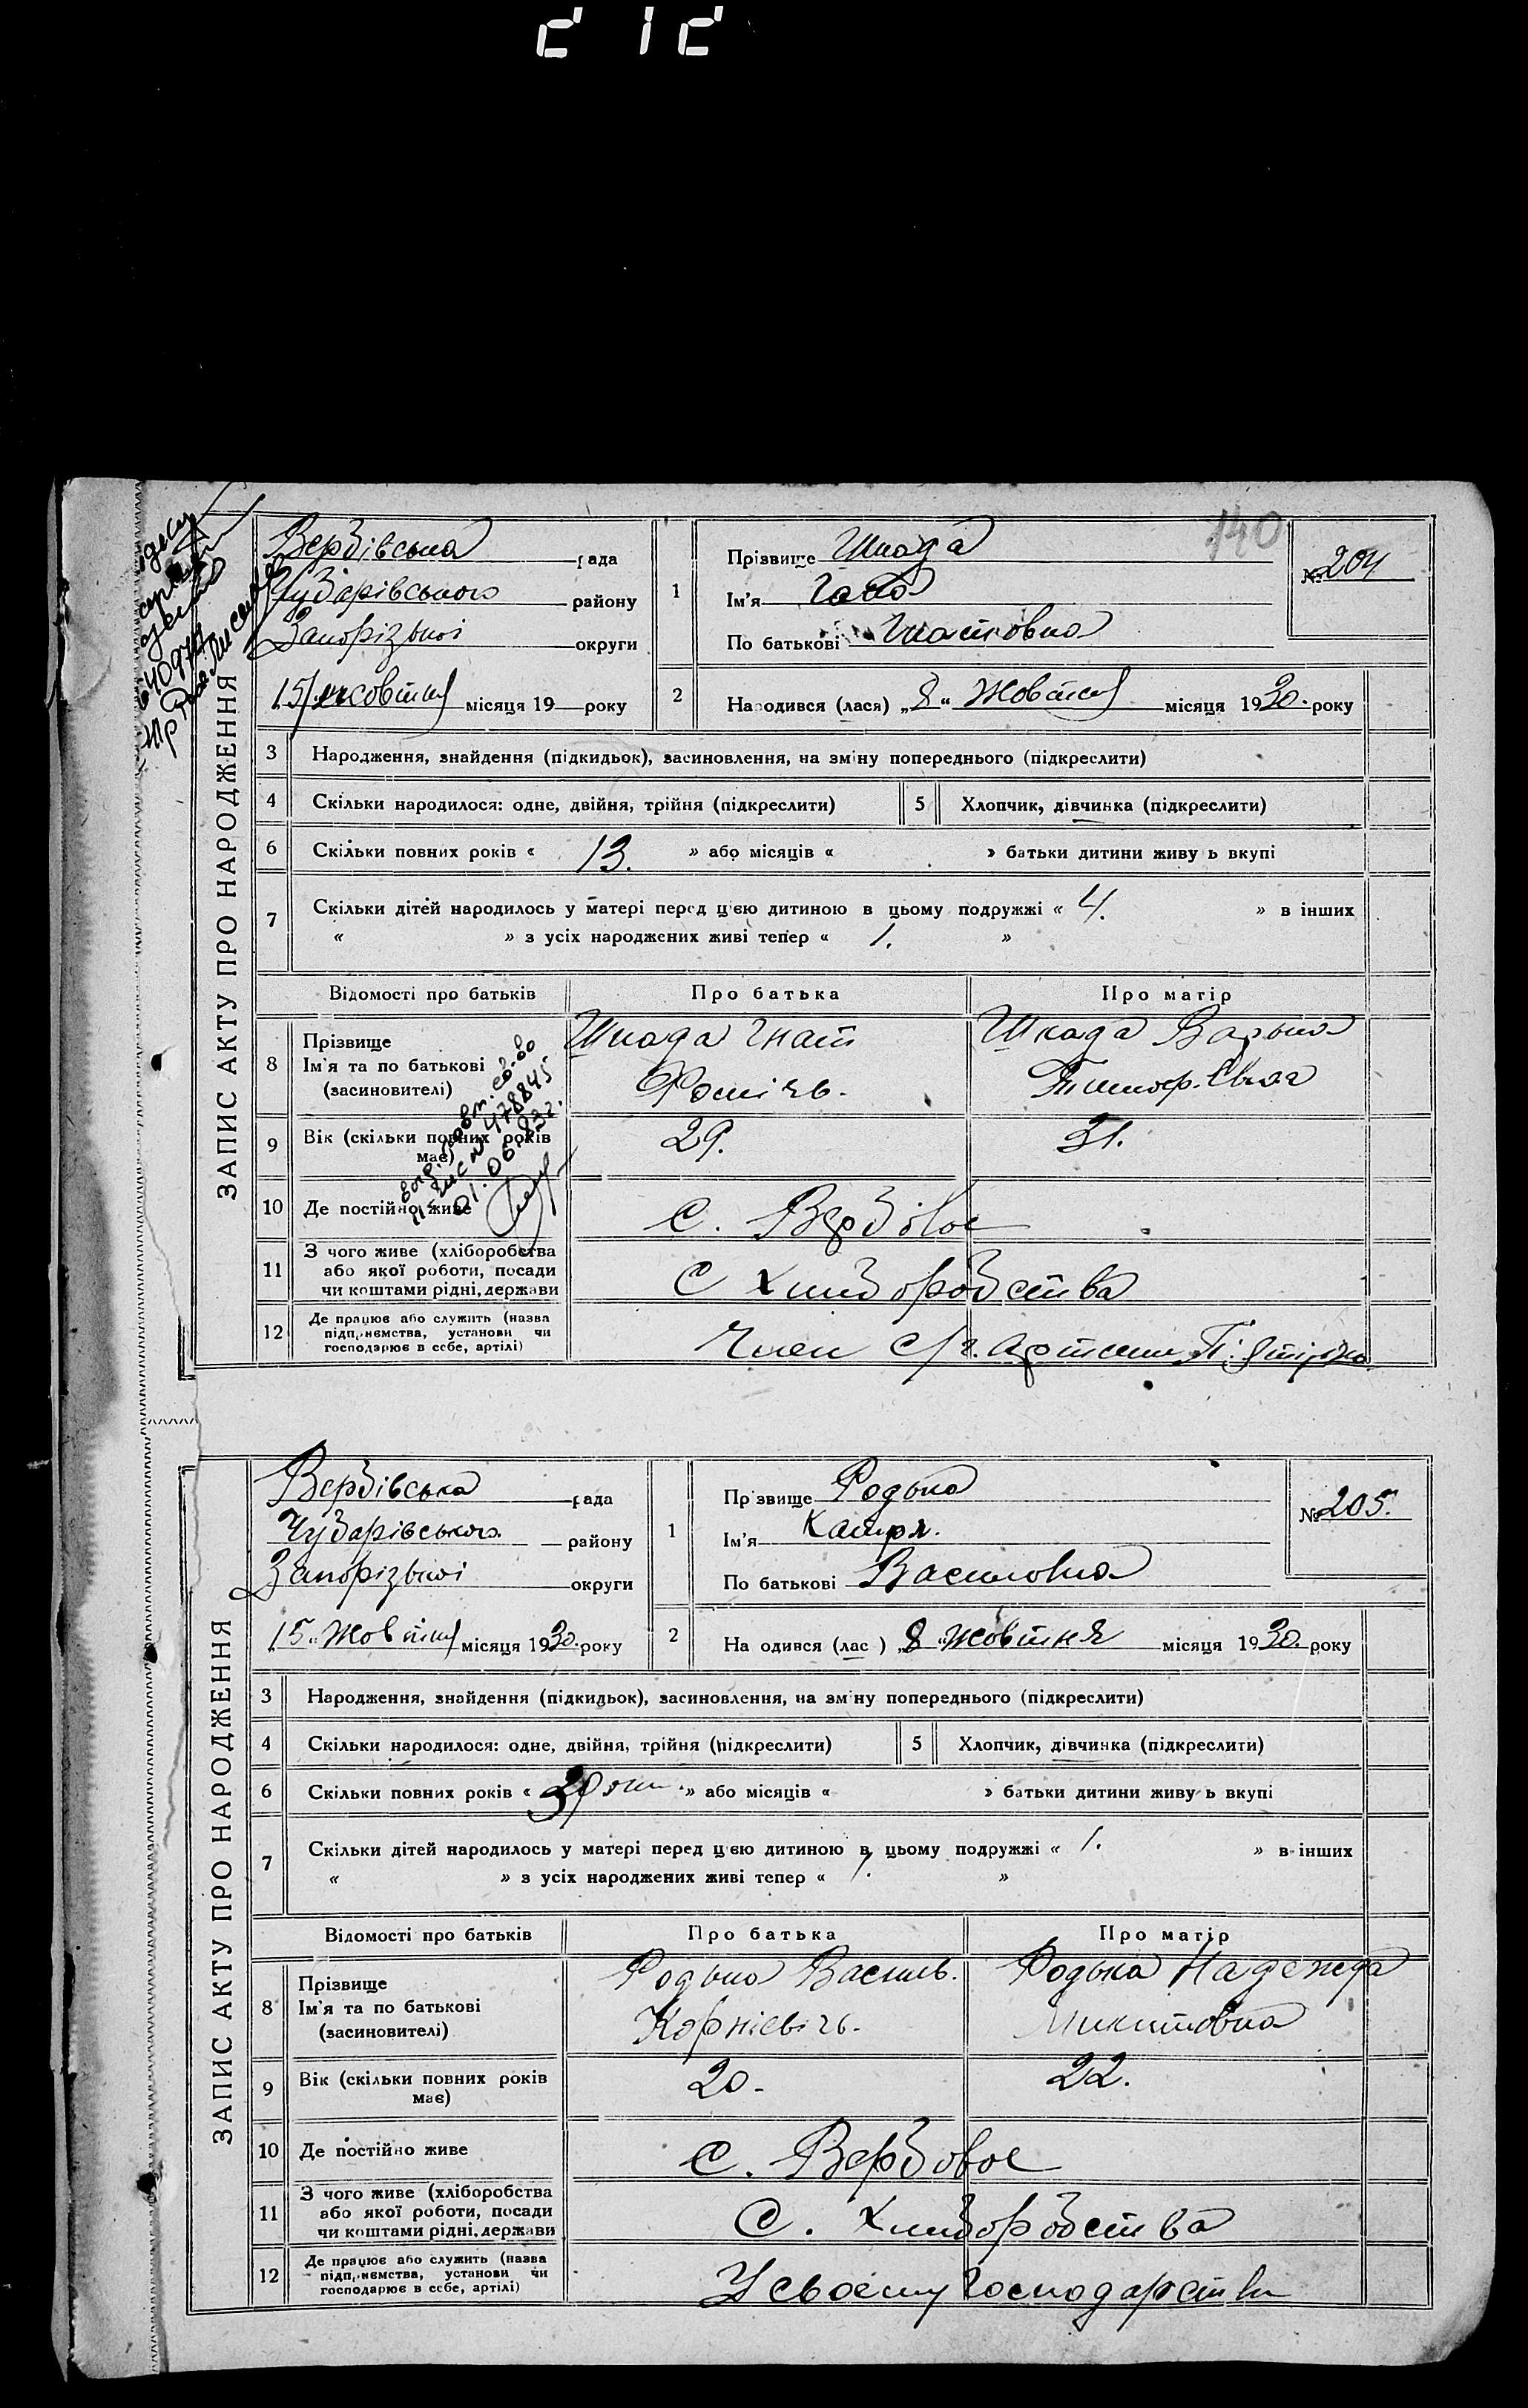 212
140
Вербівська рада
Чубарівського району
Запорізької округи
15 жовтня місяця 19 року
1 Прізвище Шкода
Ім'я
По батькові Гнатовна
№ 204
2 Народився (лася) „8“ Жовтня місяця 1930. року
ЗАПИС АКТУ ПРО НАРОДЖЕННЯ
3 Народження, знайдення (підкидьок), засиновлення, на зміну попереднього (підкреслити)
4 Скільки народилося: одне, двійня, трійня (підкреслити) 5 Хлопчик, дівчинка (підкреслити)
6 Скільки повних років « 13. » або місяців « » батьки дитини живуть вкупі
7 Скільки дітей народилось у матері перед цією дитиною в цьому подружжі « 4. » в інших
« » з усіх народжених живі тепер « 1. »
Відомості про батьків Про батька Про матір
8 Прізвище Ім'я та по батькові (засиновителі)
Шкода Гнат
Шкада Варька
9 Вік (скільки повних років має) 29. 31.
10 Де постійно живе с. Вербовое
11 З чого живе (хліборобства або якої роботи, посади чи коштами рідні, держави
С хлиборобства
12 Де працює або служить (назва підприємства, установи чи господарює в себе, артілі)
Член с/г. артели
478845
01.06.83г.
Вербівська рада
Чубарівського району
Запорізької округи
15 „Жовтня місяця 1930. року
1 Прізвище Родька
Ім'я Катря.
По батькові Василовна
№ 205.
2 Народився (лась) „8 „жовтня місяця 1930. року
ЗАПИС АКТУ ПРО НАРОДЖЕННЯ
3 Народження, знайдення (підкидьок), засиновлення, на зміну попереднього (підкреслити)
4 Скільки народилося: одне, двійня, трійня (підкреслити) 5 Хлопчик, дівчинка (підкреслити)
6 Скільки повних років « » або місяців « » батьки дитини живуть вкупі
7 Скільки дітей народилось у матері перед цією дитиною в цьому подружжі « 1. » в інших
« » з усіх народжених живі тепер « 1. »
Відомості про батьків Про батька Про матір
8 Прізвище Ім'я та по батькові (засиновителі)
Родька Василь. Родька Надежда
Корнієвічь. Микитовна
9 Вік (скільки повних років має) 20. 22.
10 Де постійно живе с. Вербовое
11 З чого живе (хліборобства або якої роботи, посади чи коштами рідні, держави
С. хлиборобства
12 Де працює або служить (назва підприємства, установи чи господарює в себе, артілі)
У своему господарстви